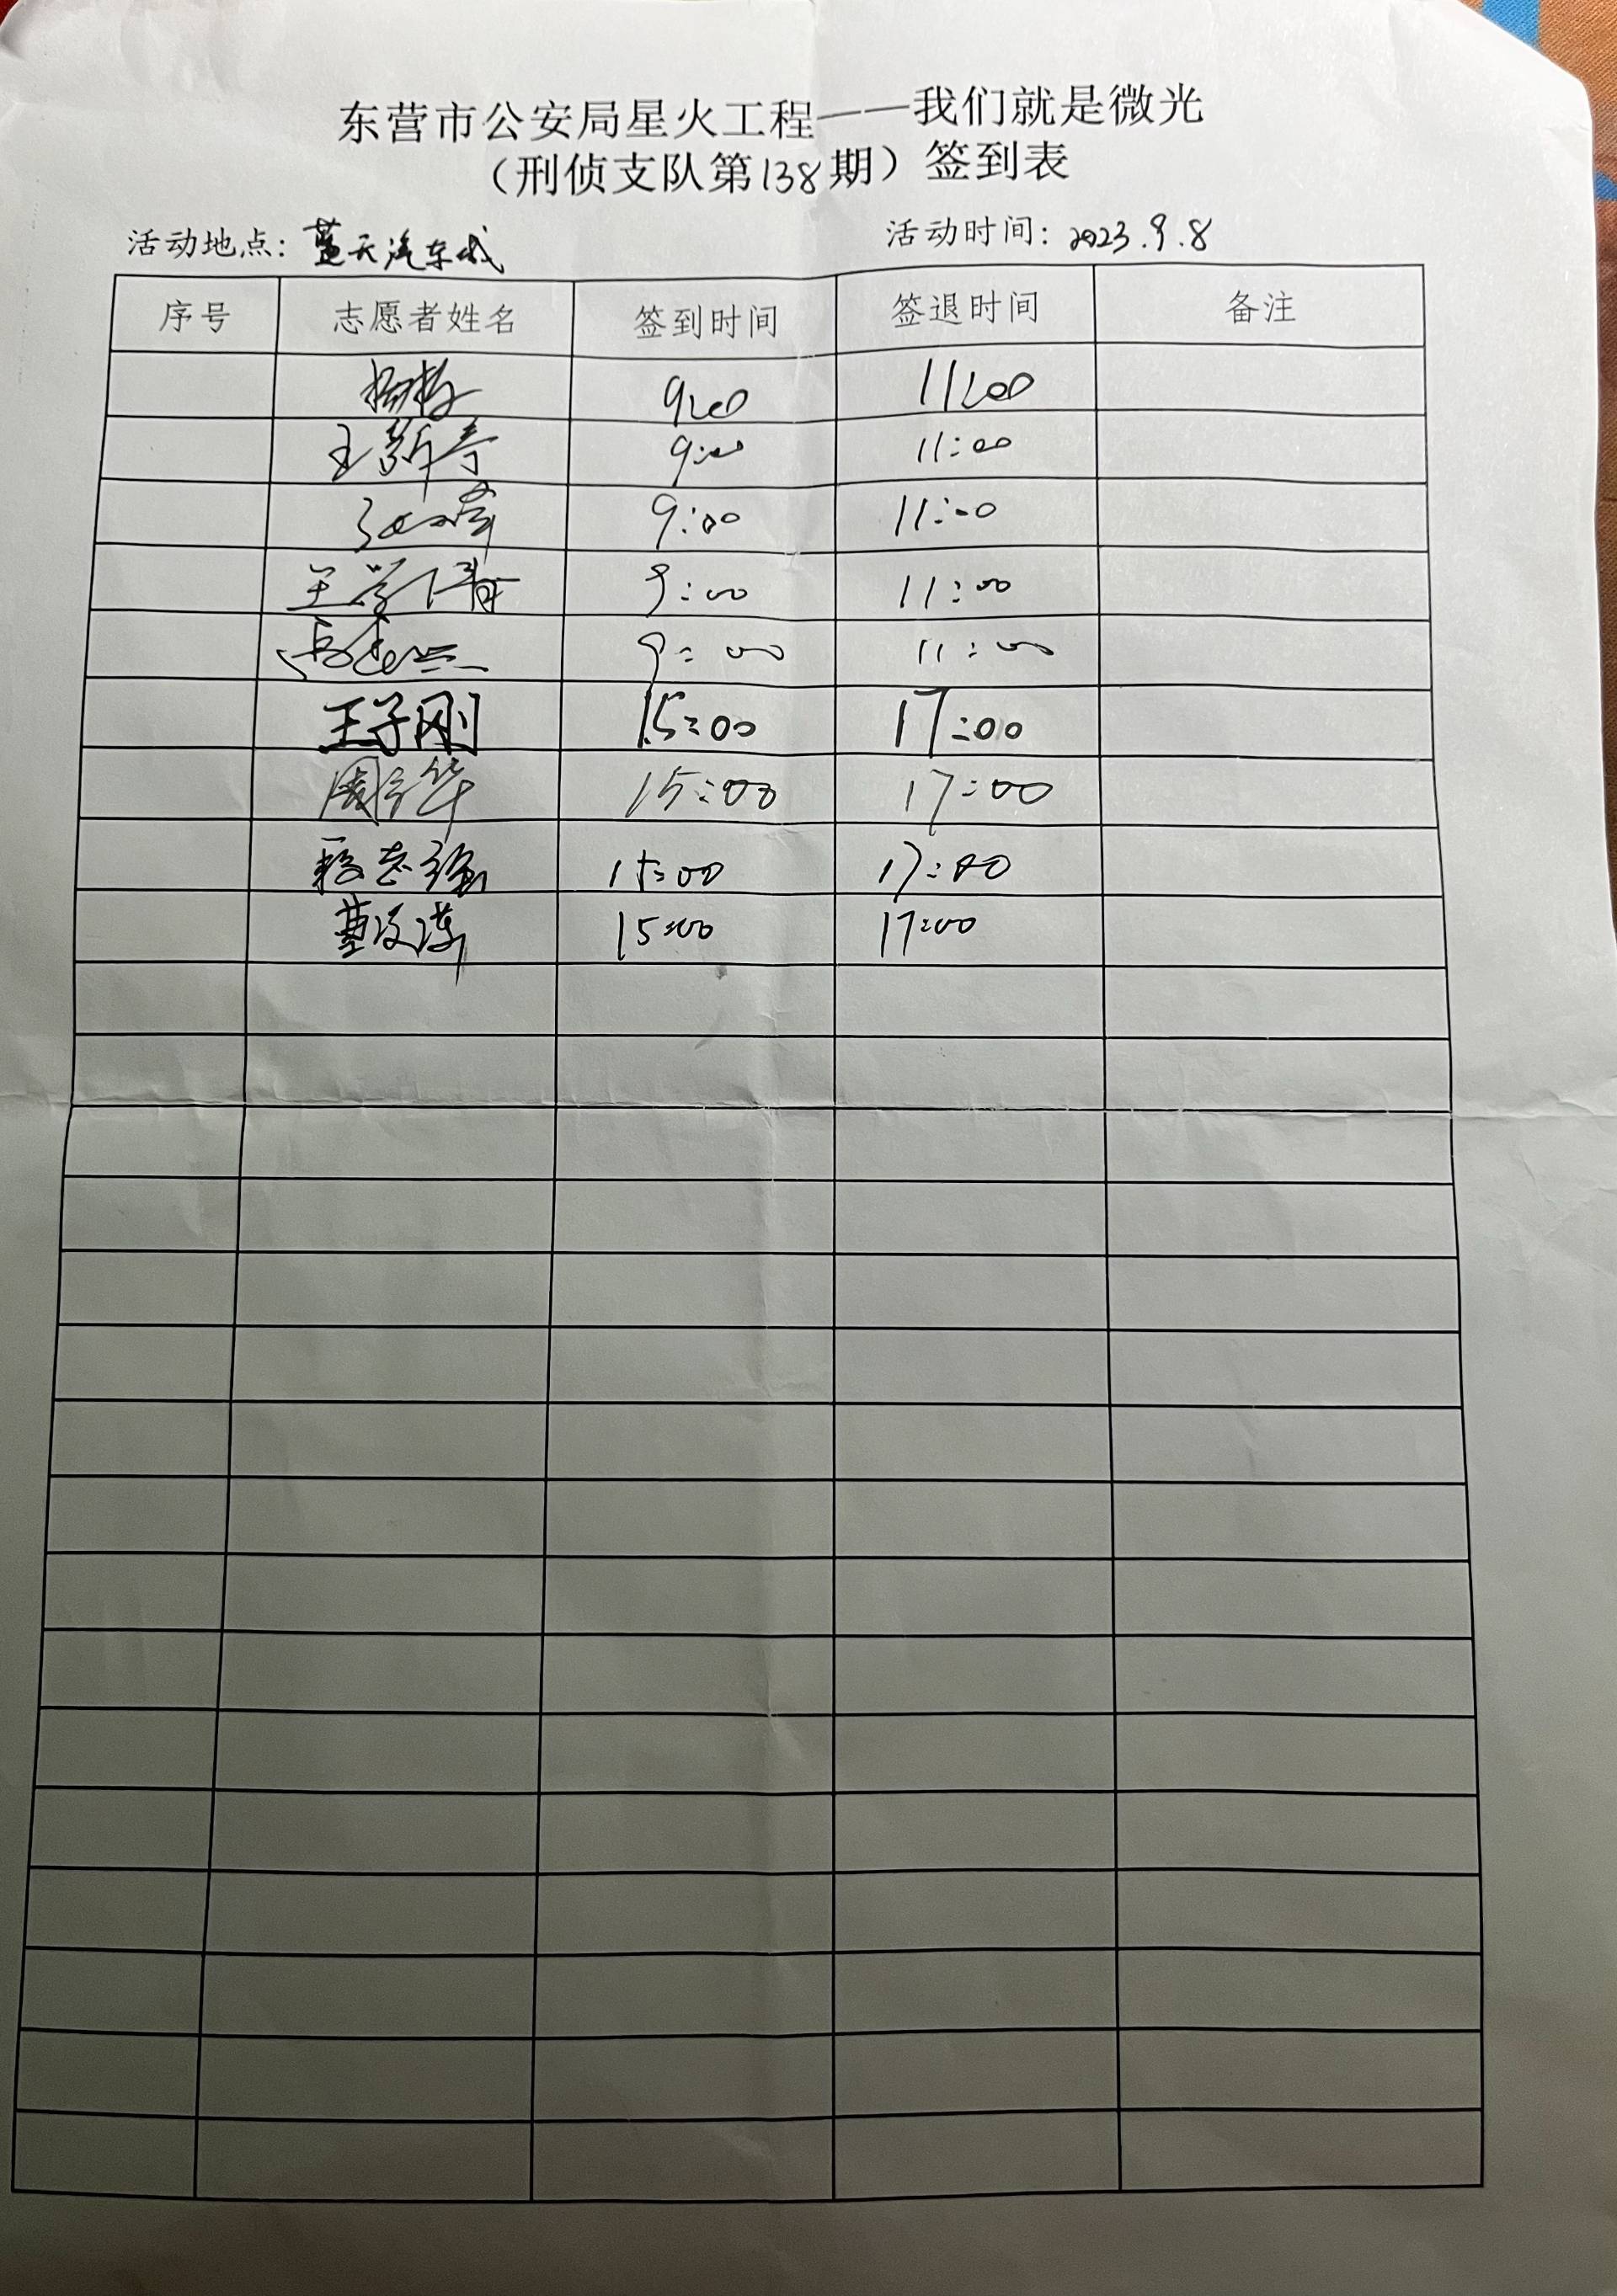 东营市公安局星火工程——我们就是微光
（刑侦支队第138期）签到表
活动地点：蓝天汽车城 活动时间：2023.9.8
序号 志愿者姓名 签到时间 签退时间 备注
9:00 11:00
王新亭 9:00 11:00
9:00 11:00
王学倩 9:00 11:00
9:00 11:00
王子刚 15:00 17:00
周立华 15:00 17:00
程志强 15:00 17:00
15:00 17:00